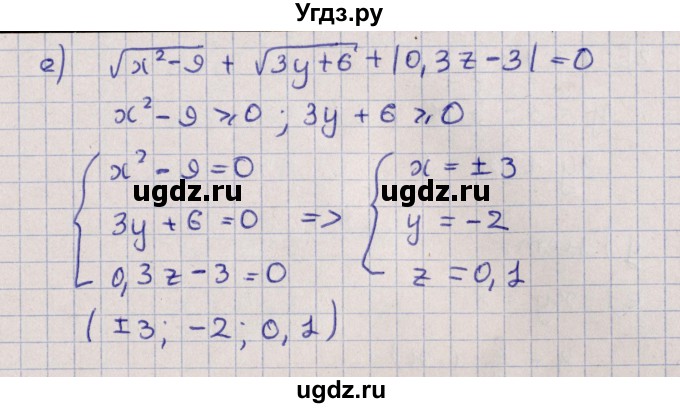 Угдз.ру
е) √x²-9 + √3y+6 + |0,3z-3| = 0
x²-9 ⩾ 0 ; 3y+6 ⩾ 0
{ x²-9=0
3y+6=0
0,3z-3=0
=> { x = ±3
y = -2
z = 0,1
(±3; -2; 0,1)
ugdz.ru
ugdz.ru
ugdz.ru